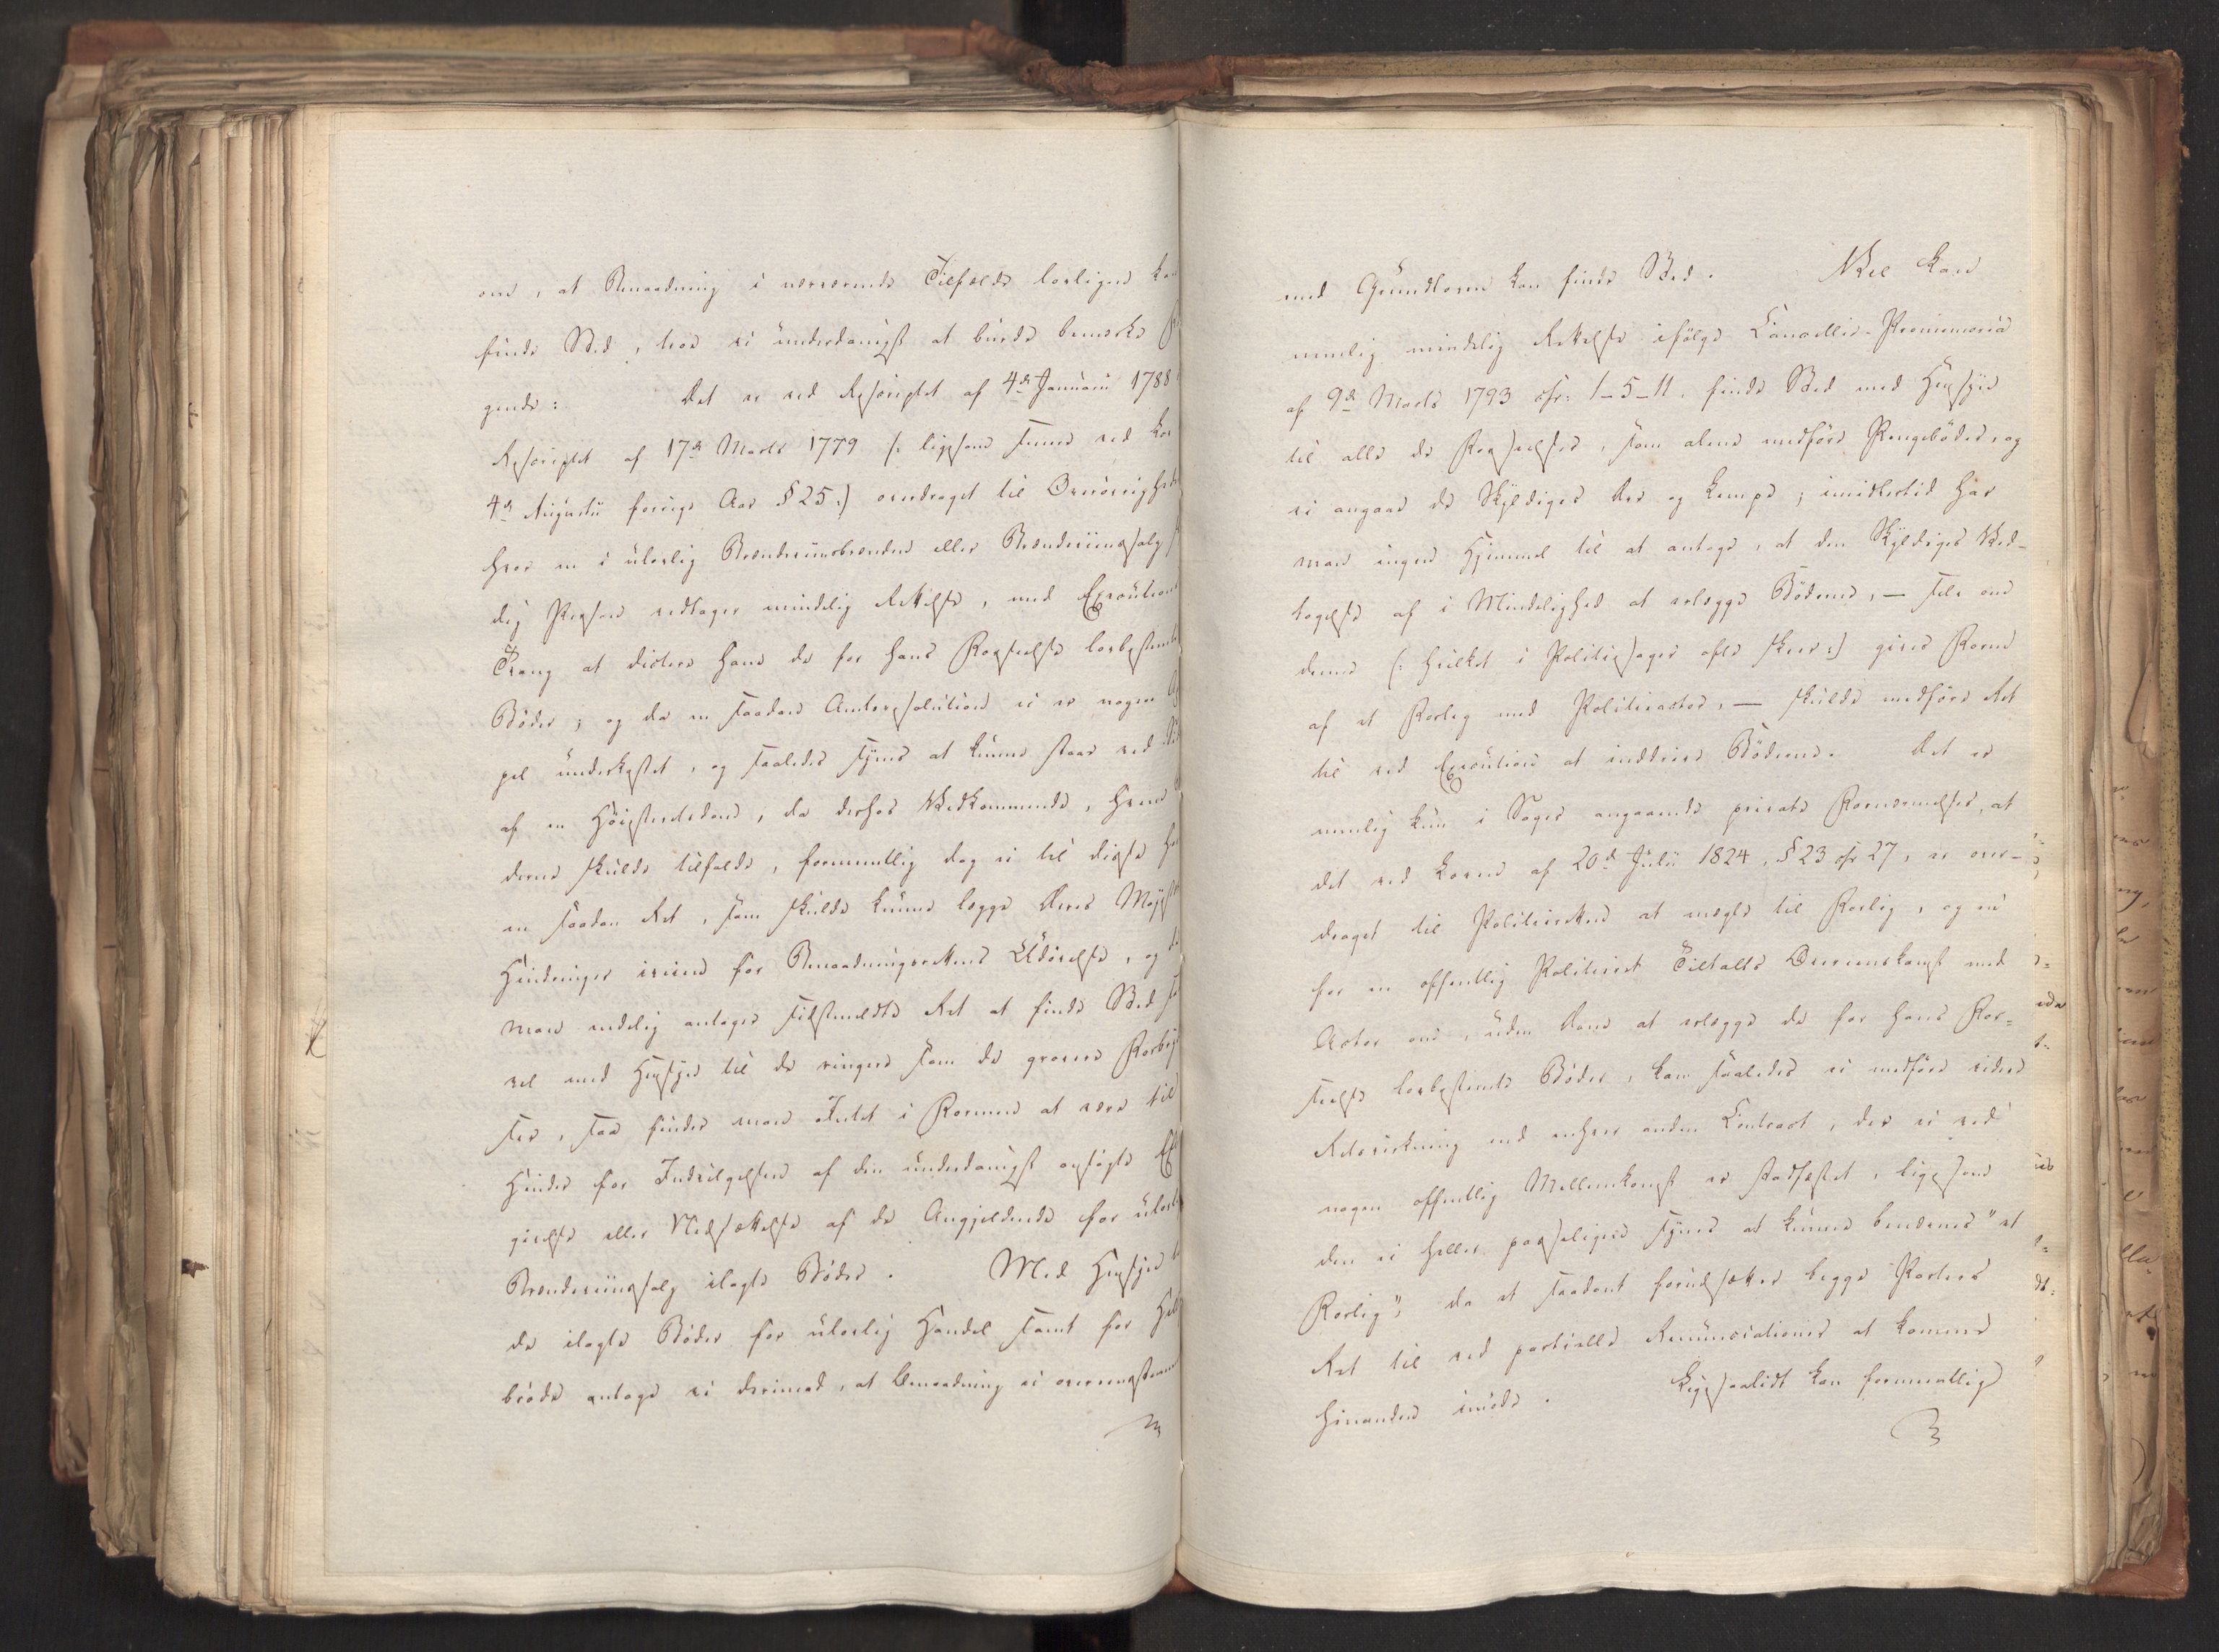 om, at Benaadning i nærværende Tilfælde lovligen kan
finde Sted, troe vi underdanigst at burde bemærke
gende: Det er ved Rescriptet af 4de Januarii 1788
Rescriptet af 17de Marts 1779 (: ligesom siden ved Lov
4de Augustii forrige Aar § 25:) overdraget til Øvrighed
hver en i ulovlig Brændeviinsbrænden eller Brændeviinssalg
dig Person vedtager mindelig Rettelse, med Executions
Tvang at dictere ham de for hans Forseelse lovbestemte
Bøder; og da en saadan Amtsresolution ei er nogen
pel underkastet, og saaledes synes at kunne staae ved
af en Høiesteretsdom, da derhos Vedkommende, hvem
derne skulde tilfalde, formeentlig dog ei til disse
en saadan Ret, som skulde kunne lægge Deres Majestæt
Hindringer iveien for Benaadningsrettens Udøvelse, og
man endelig antager sidstmeldte Ret at finde Sted
vel med Hensyn til de ringere som de grovere Forbry
ser, saa finder man Intet i Formen at være til
Hinder for Indvilgelsen af den underdanigst ansøgte Ef
givelse eller Nedsættelse af de Angjeldende for ulovl
Brændeviinssalg ilagte Bøder. Med Hensyn
de ilagte Bøder for ulovlig Handel samt for Hel
brøde antage vi derimod, at Benaadning ei overensstemmende
med Grundloven kan finde Sted. Vel kan
nemlig mindelig Rettelse ifølge Cancellie-Promemoria
af 9de Marts 1793 cfr: 1-5-11, finde Sted med Hensyn
til alle de Forseelser, som alene medføre Pengebøder, og
ei angaae de Skyldiges Ære og Lempe; imidlertid har
man ingen Hjemmel til at antage, at den Skyldiges Ved-
tagelse af i Mindelighed at erlægge Bøderne, – selv om
denne (: hvilket i Politiesager ofte skeer:) gives Form
af et Forlig med Politieactor, – skulde medføre Ret
til ved Execution at inddrive Bøderne. Det er
nemlig kun i Sager angaaende private Fornærmelser, at
det ved Loven af 20de Julii 1824, § 23 cfr 27, er over-
draget til Politieretten at mægle til Forlig, og en
for en offentlig Politieret Tiltalts Overeenskomst med
Actor om, uden Dom at erlægge de for hans For-
seelse lovbestemte Bøder, kan saaledes ei medføre videre
Retsvirkning end enhver anden Contract, der ei ved
nogen offentlig Mellemkomst er stadfæstet, ligesom
den ei heller passeligen synes at kunne benævnes "et
Forlig", da et saadant forudsætter begge Parters
Ret til ved partielle Renunciationer at komme
hinanden imøde. Ligesaalidt kan formeentlig